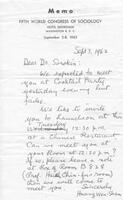 Memo
FIFTH WORLD CONGRESS OF SOCIOLOGY
HOTEL SHOREHAM
WASHINGTON 8, D. C.
September 2-8, 1962
Sept 3, 1962
Dear Dr. Sorokin:
We expected to meet
you at Cocktail Party
yesterday evening but
failed.
We like to invite
you to luncheon at this
Tuesday 12:30 p.m.
at a Chinese Restaurant
Can we meet you
at your Room at 12:30 p.m.?
If so, please leave a note
at Box of Room
(Prof. Chin's room)
then we will come
to meet you.
Sincerely
Huang Wen-Shan